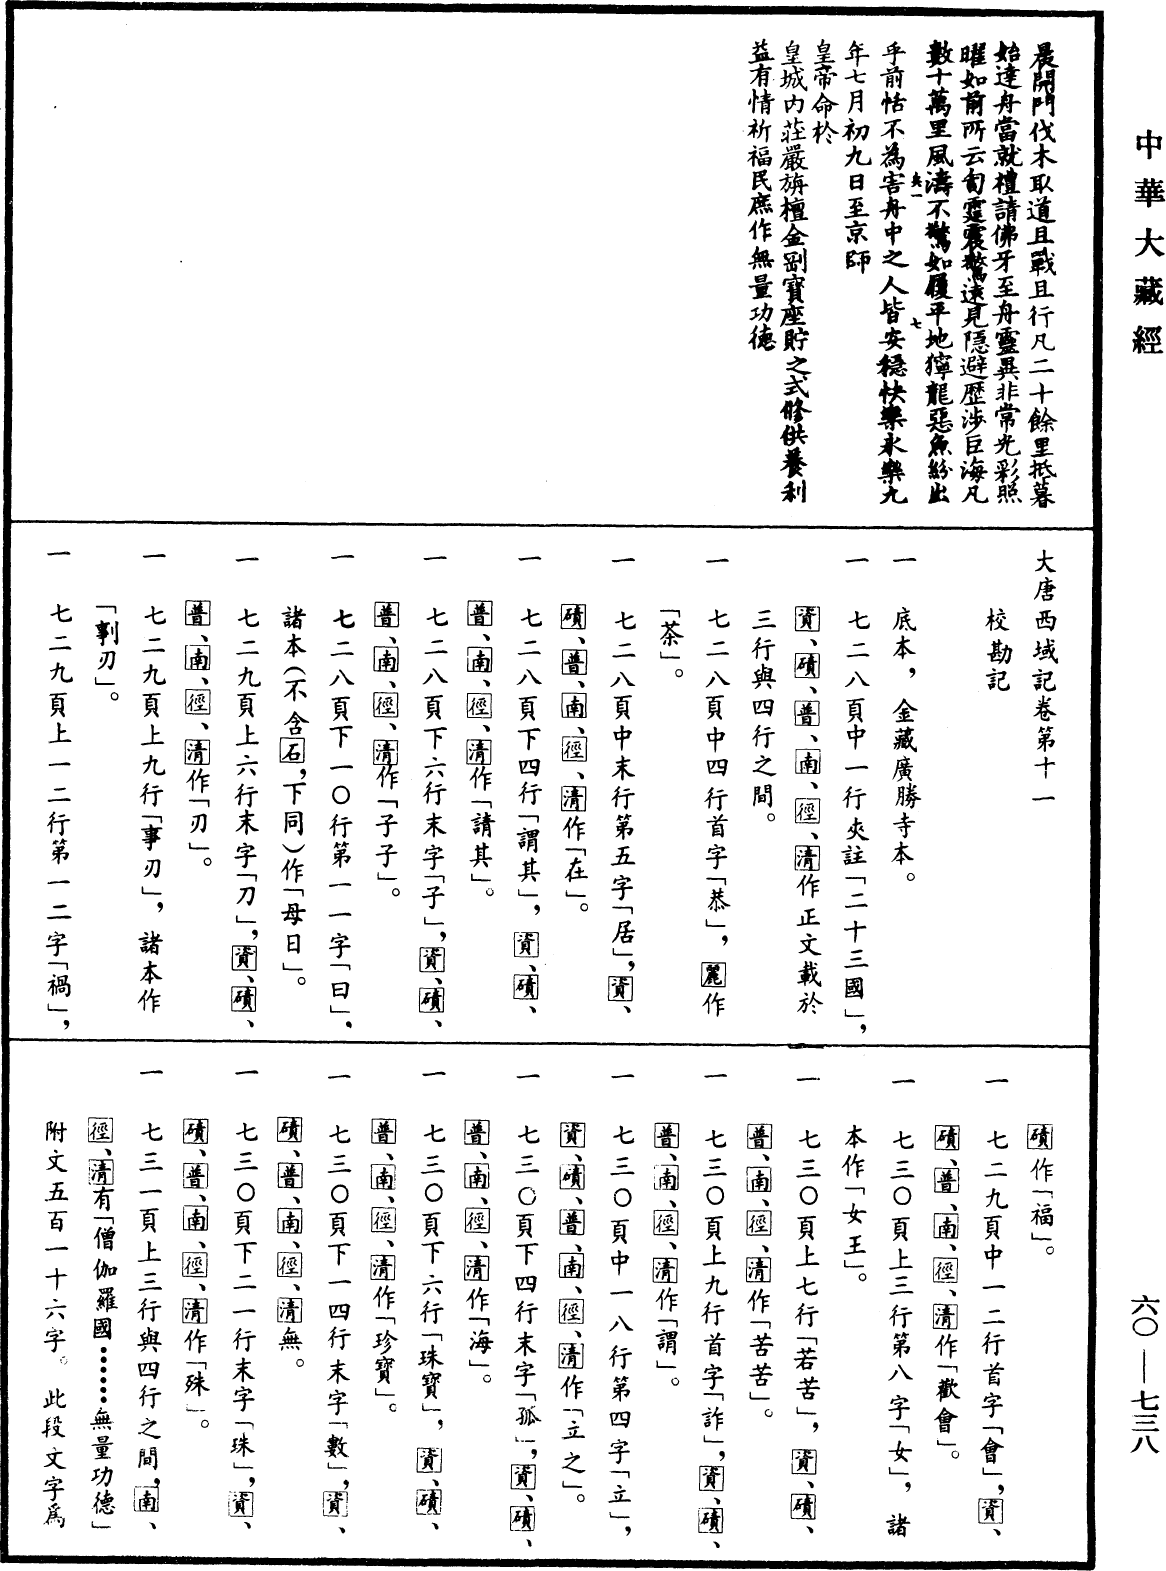 中華大藏經
晨開門伐木取道且戰且行凡二十餘里抵暮
始達舟當就禮請佛牙至舟靈異非常光彩照
曜如前所云訇霆震驚遠見隱避歷涉巨海凡
數十萬里風濤不驚如履平地獰龍惡魚紛出
乎前恬不為害舟中之人皆安穩快樂永樂九
年七月初九日至京師
皇帝命於
皇城內莊嚴旃檀金剛寶座貯之式修供養利
益有情祈福民庶作無量功德
大唐西域記卷第十一
校勘記
一 底本，金藏廣勝寺本。
一 七二八頁中一行夾註「二十三國」，
資、磧、普、南、徑、清作正文載於
三行與四行之間。
一 七二八頁中四行首字「恭」，麗作
「荼」。
一 七二八頁中末行第五字「居」，資、
磧、普、南、徑、清作「在」。
一 七二八頁下四行「謂其」，資、磧、
普、南、徑、清作「請其」。
一 七二八頁下六行末字「子」，資、磧、
普、南、徑、清作「子子」。
一 七二八頁下一〇行第一一字「曰」，
諸本（不含石，下同）作「母日」。
一 七二九頁上六行末字「刀」，資、磧、
普、南、徑、清作「刃」。
一 七二九頁上九行「事刃」，諸本作
「剚刃」。
一 七二九頁上一二行第一二字「禍」，
磧作「福」。
一 七二九頁中一二行首字「會」，資、
磧、普、南、徑、清作「歡會」。
一 七三〇頁上三行第八字「女」，諸
本作「女王」。
一 七三〇頁上七行「若苦」，資、磧、
普、南、徑、清作「苦苦」。
一 七三〇頁上九行首字「詐」，資、磧、
普、南、徑、清作「謂」。
一 七三〇頁中一八行第四字「立」，
資、磧、普、南、徑、清作「立之」。
一 七三〇頁下四行末字「孤」，資、磧、
普、南、徑、清作「海」。
一 七三〇頁下六行「珠寶」，資、磧、
普、南、徑、清作「珍寶」。
一 七三〇頁下一四行末字「數」，資、
磧、普、南、徑、清無。
一 七三〇頁下二一行末字「珠」，資、
磧、普、南、徑、清作「殊」。
一 七三一頁上三行與四行之間，南、
徑、清有「僧伽羅國……無量功德」
附文五百一十六字。此段文字爲
六〇—七三八